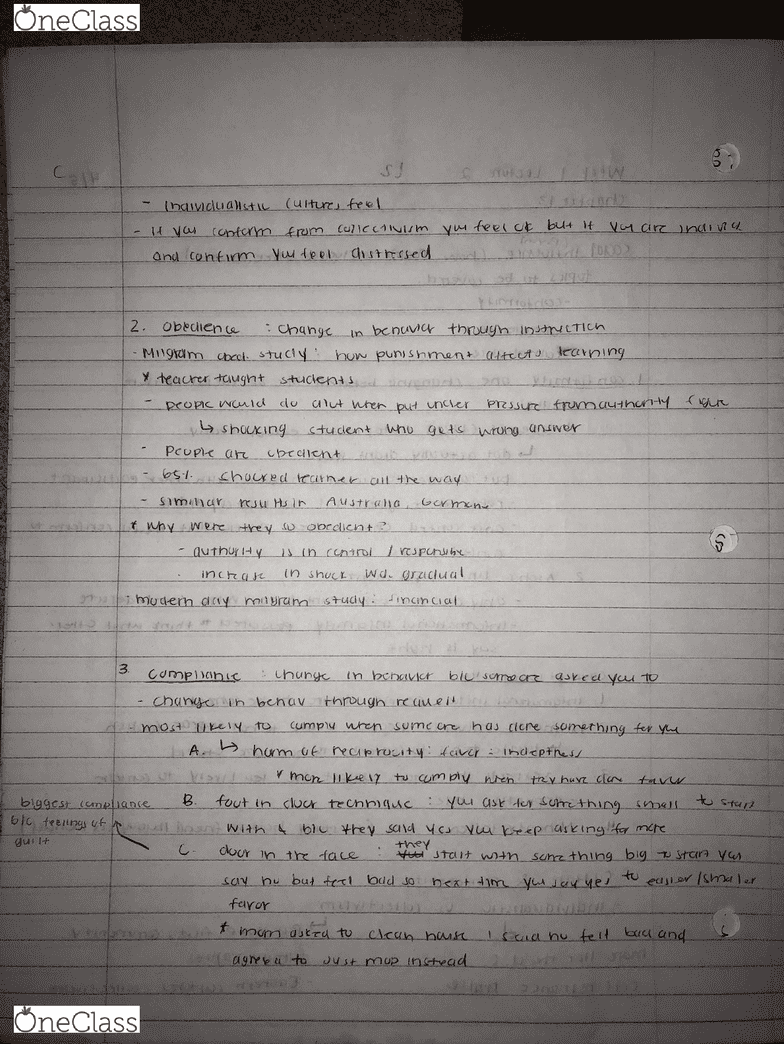 OneClass
C
- Individualistic cultures feel
- if you conform from collectivism you feel ok but if you are individ
and confirm you feel distressed
2. Obedience : change in behavior through instruction
- Milgram obed. study : how punishment affects learning
* teacher taught students
- people would do alot when put under pressure from authority figure
↳ shocking student who gets wrong answer
- People are obedient
- 65% shocked learner all the way
- similiar results in Australia, Germany
* why were they so obedient?
- authority is in control / responsible
- increase in shock wd. gradual
: modern day milgram study : financial
3. Compliance : change in behavior b/c someone asked you to
- change in behav through request
- most likely to comply when someone has done something for you
A. ↳ norm of reciprocity : favor = indeptness
* more likely to comply when they have done favor
biggest compliance
b/c feelings of
guilt
B. foot in door technique : you ask for something small to start
with & b/c they said yes you keep asking for more
C. door in the face : they start with something big to start you
say no but feel bad so next time you say yes to easier/smaller
favor
* mom asked to clean house I said no felt bad and
agreed to just mop instead
OneClass